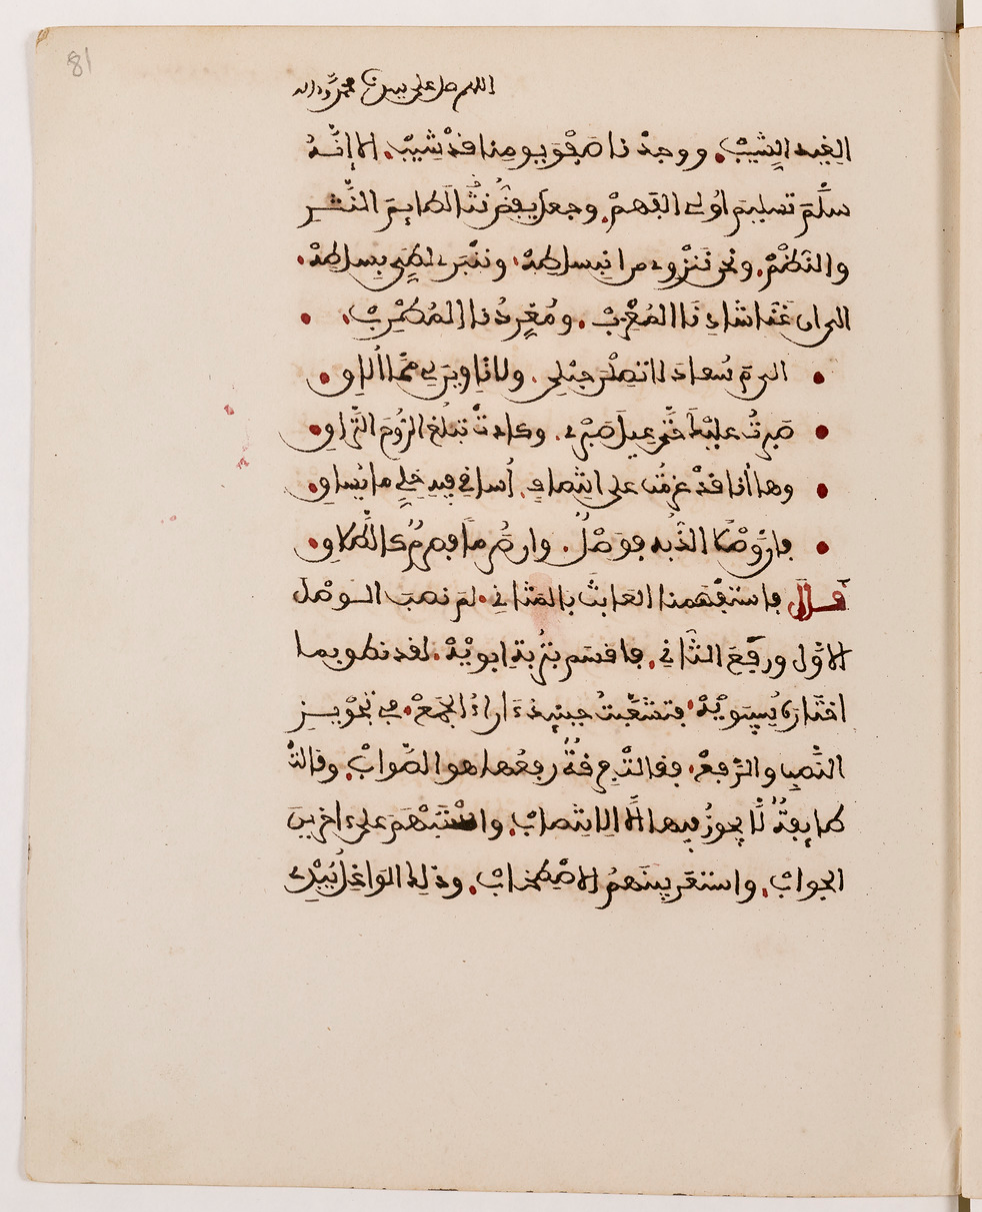 اللهم صل على سيدنا محمد وءاله
الغيد الشيب. ووجدنا صفو يومنا قد شيب. الا انه
سلم تسليم اولى الفهم. وجعل يفض لطائم النثر
والنظم. ونحن ننزوى من انبساطه. وننبرى لطى بساطه.
الى ان غنا شادينا المغرب. ومغردنا المطرب.
الى م سعاد لا تصلين حبلى. ولا تاوين لى مما الاق
صبرت عليك حتى عيل صبرى. وكادت تبلغ الروح التراق
وها انا قد عزمت على انتصاف. اساقى فيه خلى ما يساق
فان وصلا الذ به فوصل. وان صرما فصرم كالطلاق
قال فاستفهمنا العابث بالمثانى. لم نصب الوصل
الاول ورفع الثانى. فاقسم بتربة ابويه. لقد نطق بما
اختاره سيبويه. فتشعبت حينئذ اراء الجمع. فى تجويز
النصب والرفع. فقالت فرقة رفعهما هو الصواب. وقالت
طايفة لا يجوز فيهما الا الانتصاب. واستبهم على اخرين
الجواب. واستعر بينهم الاصطخاب. وذلك الواغل يبدى